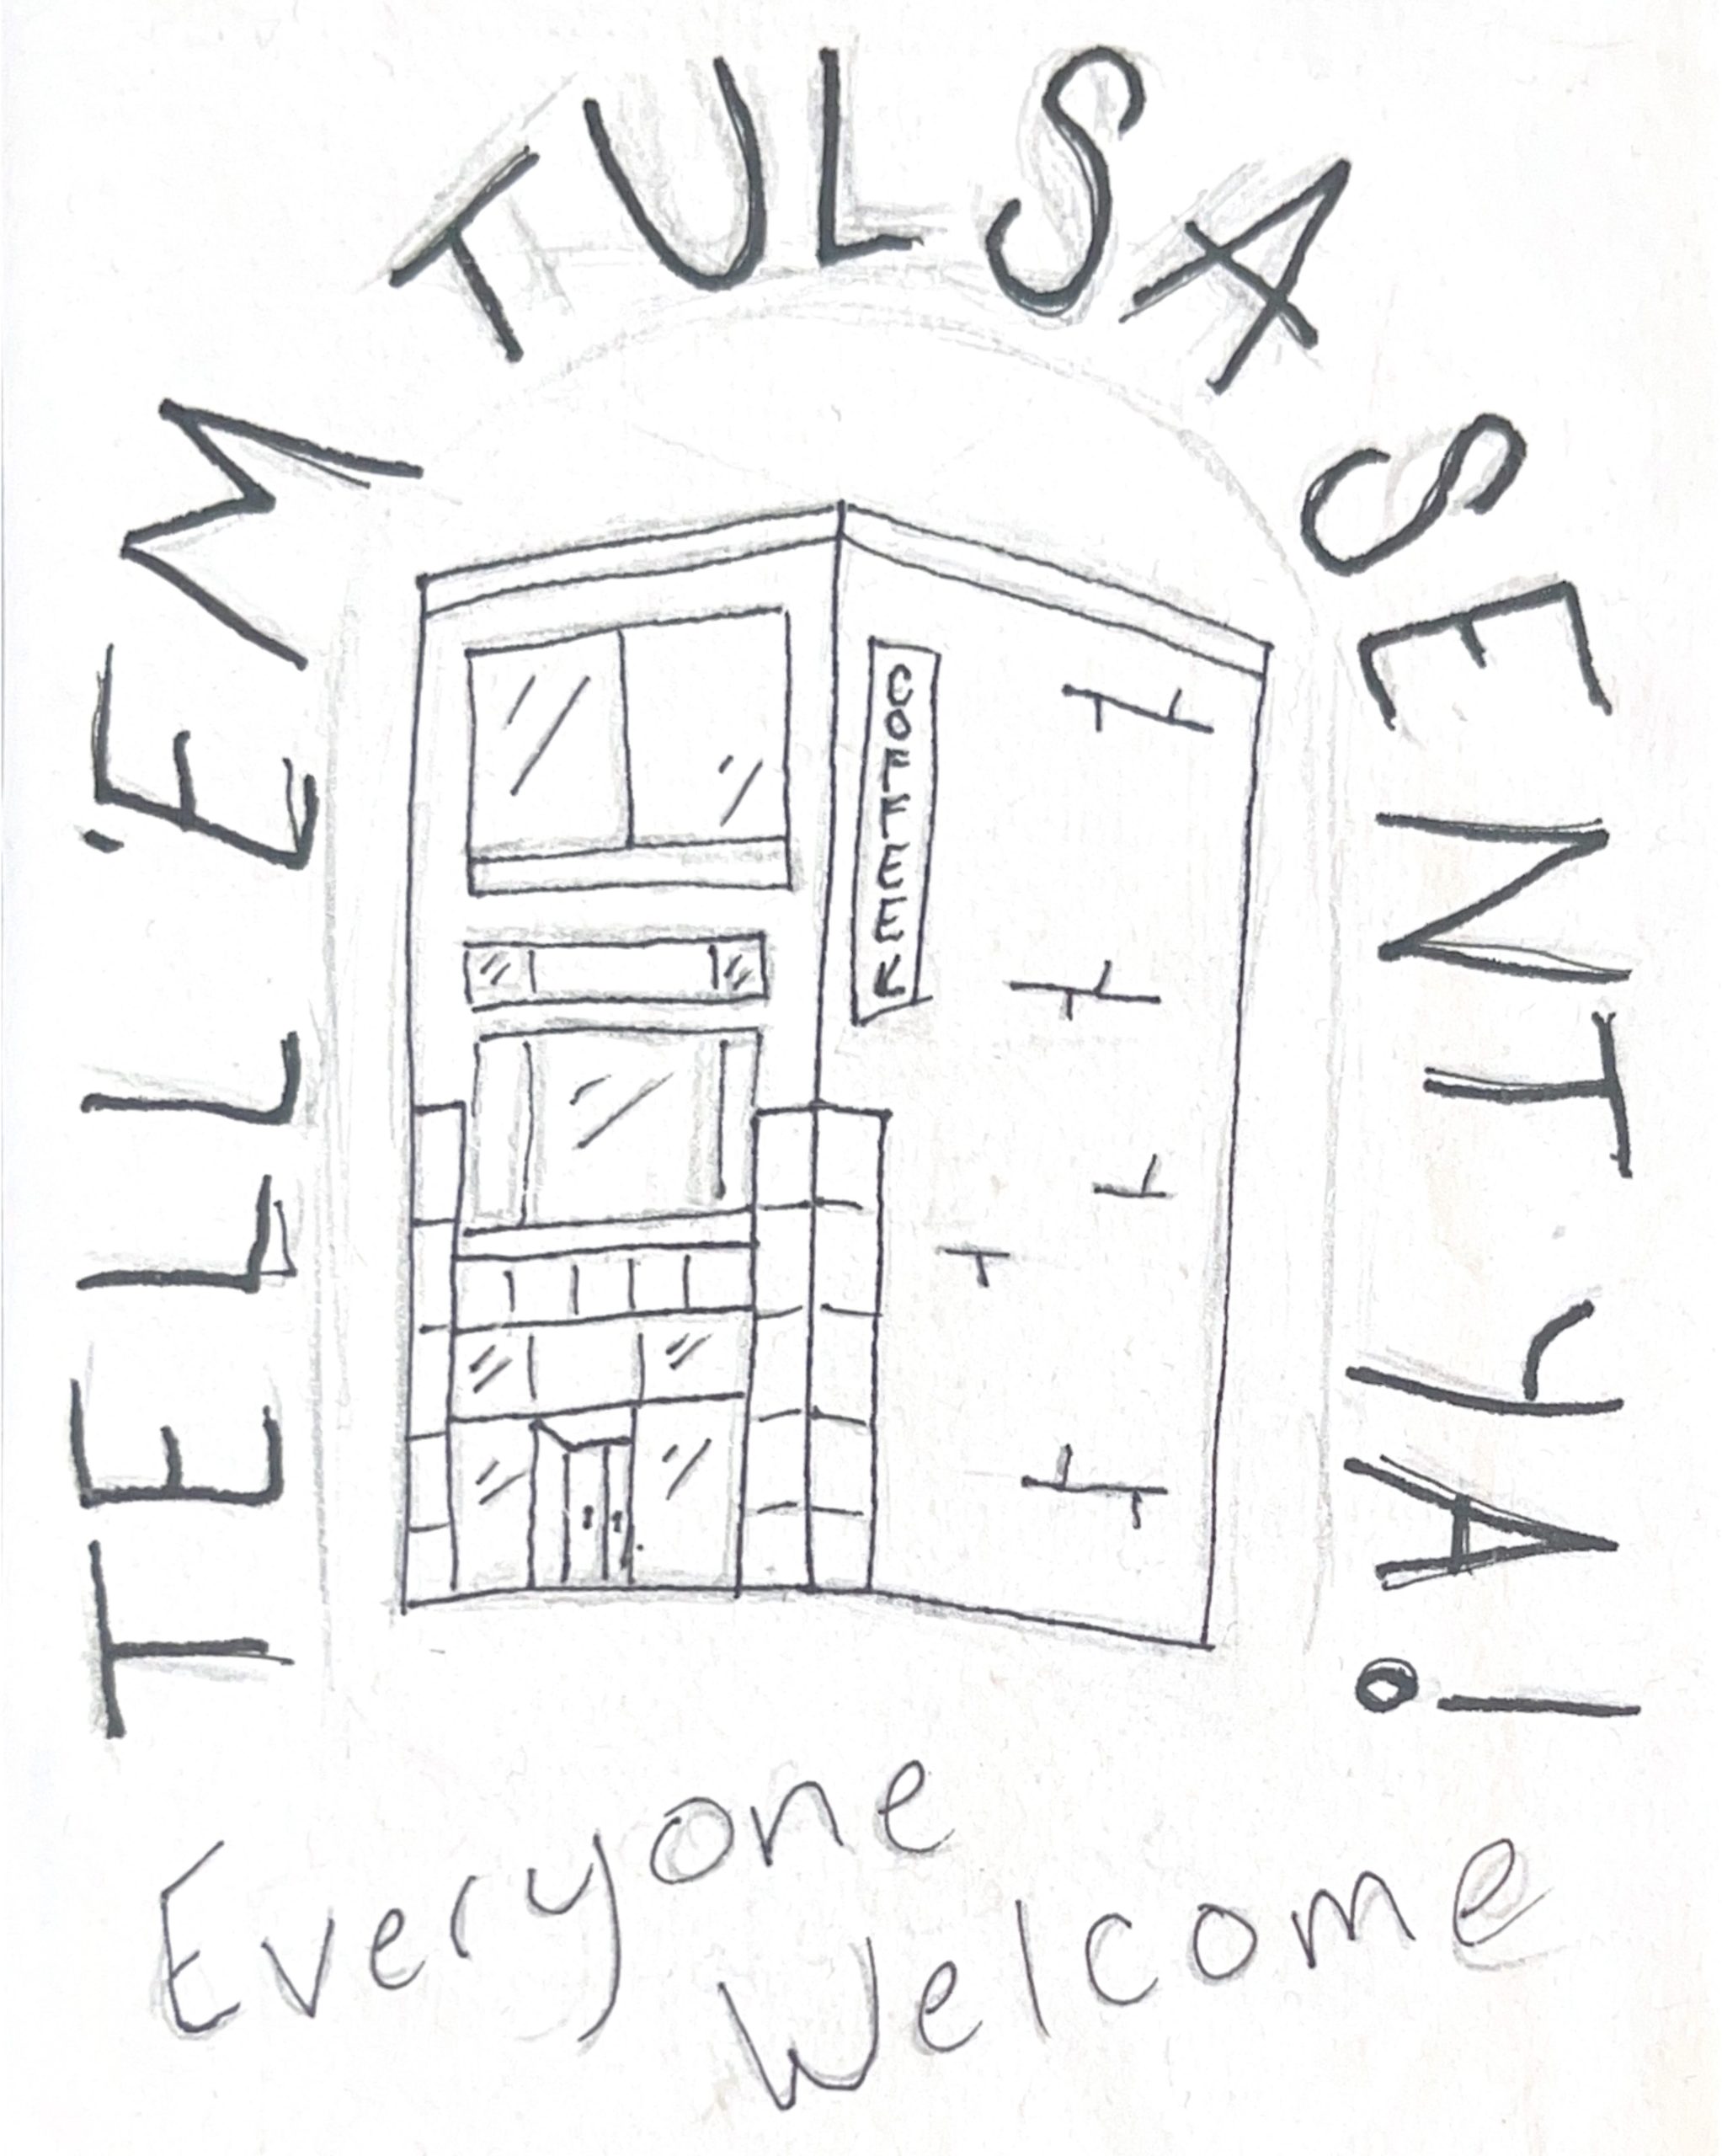 TELL 'EM TULSA SENT YA!
COFFEE
Everyone
Welcome